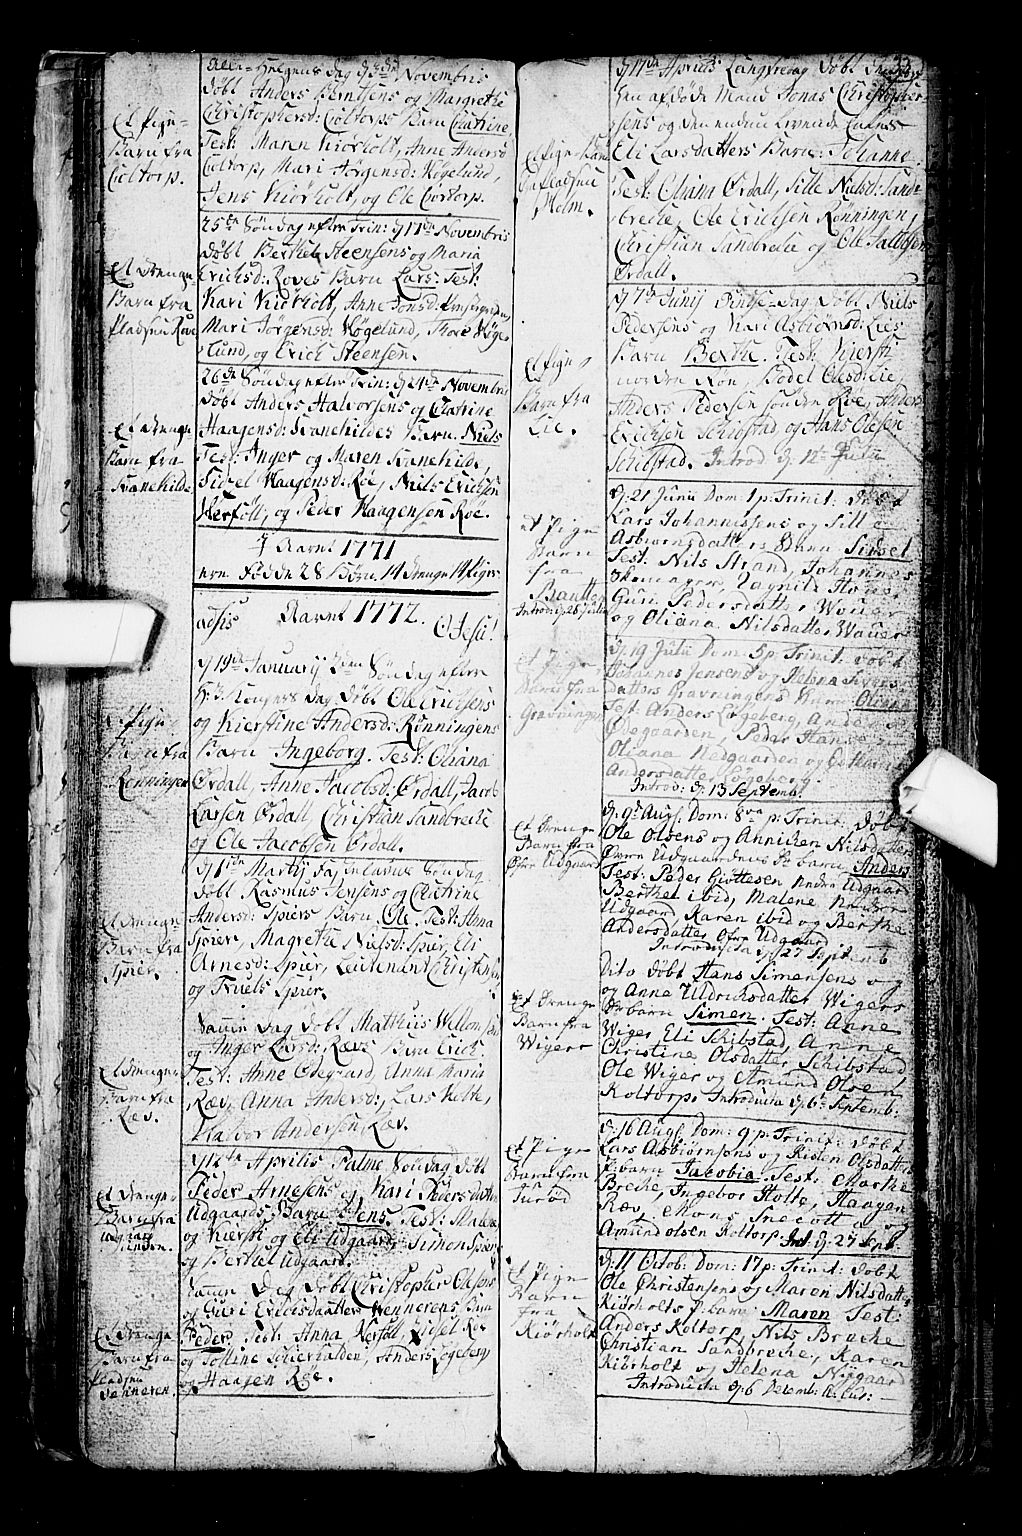 Alle-Helgens Dag d 3die Novembris
døbt Anders Berntsens og Margrethe
Christophersd: Coltorps Barn Cathrine
Test: Maren Kiørholt, Anne Andersd
Coltorp, Mari Jørgensd: Høgelund,
Jens Kiørholt, og Ole Coltorp.
Et Pige-
Barn fra
Coltorp.
25de Søndag efter Trin: d 17de Novembris
døbt Berthel Steensens og Maria
Erichsd: Roves Barn Lars: Test:
Kari Kiørholt, Anne Jonsd:
Mari Jørgensd: Høgelund, Thore Høge-
lund, og Erich Steensen.
Et Drenge-
Barn fra
Pladsen Roe
26de Søndag efter Trin: d 24de Novembris
døbt Anders Halvorsens og Cathrine
Haagensd: Svanehildes Barn Niels
Test: Inger og Maren Svanehilde,
Sidsel Haagensd: Roe, Niels Erichsen
Herføll, og Peder Haagensen Roe.
Et Drenge
Barn fra
Svanehilde
I Aaret 1771
ere Fødde 28 Børn 14 drenge 14 Piger
Aaret 1772. O Jesu!
d 19de January 2den Søndag efter
H: 3 Kongers Dag døbt Ole Erichsens
og Kierstine Andersd: Rønningens
Barn Ingeborg. Test: Oliana
Ørdall, Anne Jacobsd: Ørdall, Jacob
Larsen Ørdall, Christian Sandbreche
og Ole Jacobsen Ørdall.
Et Pige-
Barn fra
Rønningen
d 1ste Marty Fastelavns Søndag
døbt Rasmus Jensens og Cathrine
Andersd: Spiers Barn Ole. Test: Anna
Spier, Magrethe Nielsd: Spier, Eli
Arnesd: Spier, Lieutenant Christensen
og Truels Spier.
Et Drenge-
Barn fra
Spier.
Samme Dag døbt Matthis
og Inger Larsd: Rævs Barn Erich.
Test: Anne Ødegaard, Anna Maria
Ræv, Anna Andersd:, Lars Holte,
Halvor Andersen Ræv.
Et Drenge-
Barn fra
Ræv.
d 12te Aprilis Palme Søndag døbt
Peder Arnesens og Kari Peders datter
Udgaards Barn Jens. Test: Malene
og Kierst: og Eli Udgaard, Simon Spier
og Berthel Udgaard.
Et Drenge-
Barn fra
Udgaard
Samme Dag døbt Christopher Olesens
og Guri Erichsdatters Vennerens Barn
Peder. Test: Anna Herføll, Sidsel Roe
og Tolline Schierhalden, Anders Løgeberg
og Haagen Roe.
Et Drenge
Barn fra
Pladsen
Venneren.
33
d 17de Aprilis Langfredag døbt
sen afdøde Mand Jonas Christopher-
sens og den endnu Levende Enkes
Eli Larsdatters Barn: Johanne
Test: Oliana Ørdall, Sille Nielsd: Sand-
breche, Ole Erichsen Rønningen,
Christian Sandbreche og Ole Jacobsen
Ørdall.
Et Pige-Barn
fra Pladsen
Holm.
d 7de Junij Pintse-Dag døbt Niels
Pedersens og Kari Asbiørnsd: Lies
Barn Berthe. Test: Kierst:
norden Roe, Bodel Olesd: Lie,
Anders Pedersen sønden Roe, Anders
Erichsen Schibstad og Hans Olesen
Schibstad. Introd d. 12te Julii
Et Pige
Barn fra
Lie.
d. 21 Junii Dom: 1 p: Trinit: døbt
Lars Johannissens og Sille
Asbiørnsdatters Barn Sidsel
Test: Nils Strand, Johannes
Ragnild Hores
Guri Pedersdatter Wouer
og Oliana Nilsdatter Wauer
et Pige
Barn
fra
Introd: d 26 Julii
d. 19 Julii Dom: 5 p: Trinit: døbt
Johannes Jensens og Helena Sivers
datters Gravningens Barn Oliana
Test: Anders Løgeberg, Anders
Ødegaarden, Peder Hansen
Oliana Nedgaarden og Cathrine
Andersdatter Løgeberg.
Introd: d. 13 Septemb.
et Pige
Barn fra
Gravningen
d. 9de Aug: Dom: 8va p: Trinit: døbt
Ole Olsens og Annicken Nilsdatter
Øvre Udgaardens Æ barn Anders
Test: Peder Giøttesen Nedre Udgaard
Berthel ibid, Malene Nedre
Udgaard, Karen ibid og Berthe
Andersdatter Øfre Udgaard
Introducta d 27 Septemb
Et Drenge
Barn fra
Øfre Udgaard
Dito døbt Hans Simensens og
og Anne Uldrichsdatter Wigers
Æ barn Simen. Test: Anne
Wiger, Eli Schibstad, Anne
Christine Olsdatter Schibstad
Ole Wiger og Amund Olsen
Koltorp. Introducta d. 6te Septemb:
Et Drenge
Barn fra
Wigers
d. 16 Aug: Dom: 9 p: Trinit: døbt
Lars Asbiørnsens og Kisten Olsdatters
Æ barn Jacobia. Test: Marthe
Breche, Ingebor Holte, Haagen
Ræv, Mons Snecott og
Amund olsen Koltorp Int. d: 27 Sept:
et Pige
Barn fra
d. 11 Octob: Dom: 17 p: Trinit: døbt
Ole Christensens og Maren Nilsdatter
Kiørholts Æ barn Maren Test:
Anders Koltorp, Nils Breche
Christian Sandbreche, Karen
Kiørholt og Helena Nijgaard
Introducta d. 6 Decemb:
et Pige
Barn
fra
Kiørholt